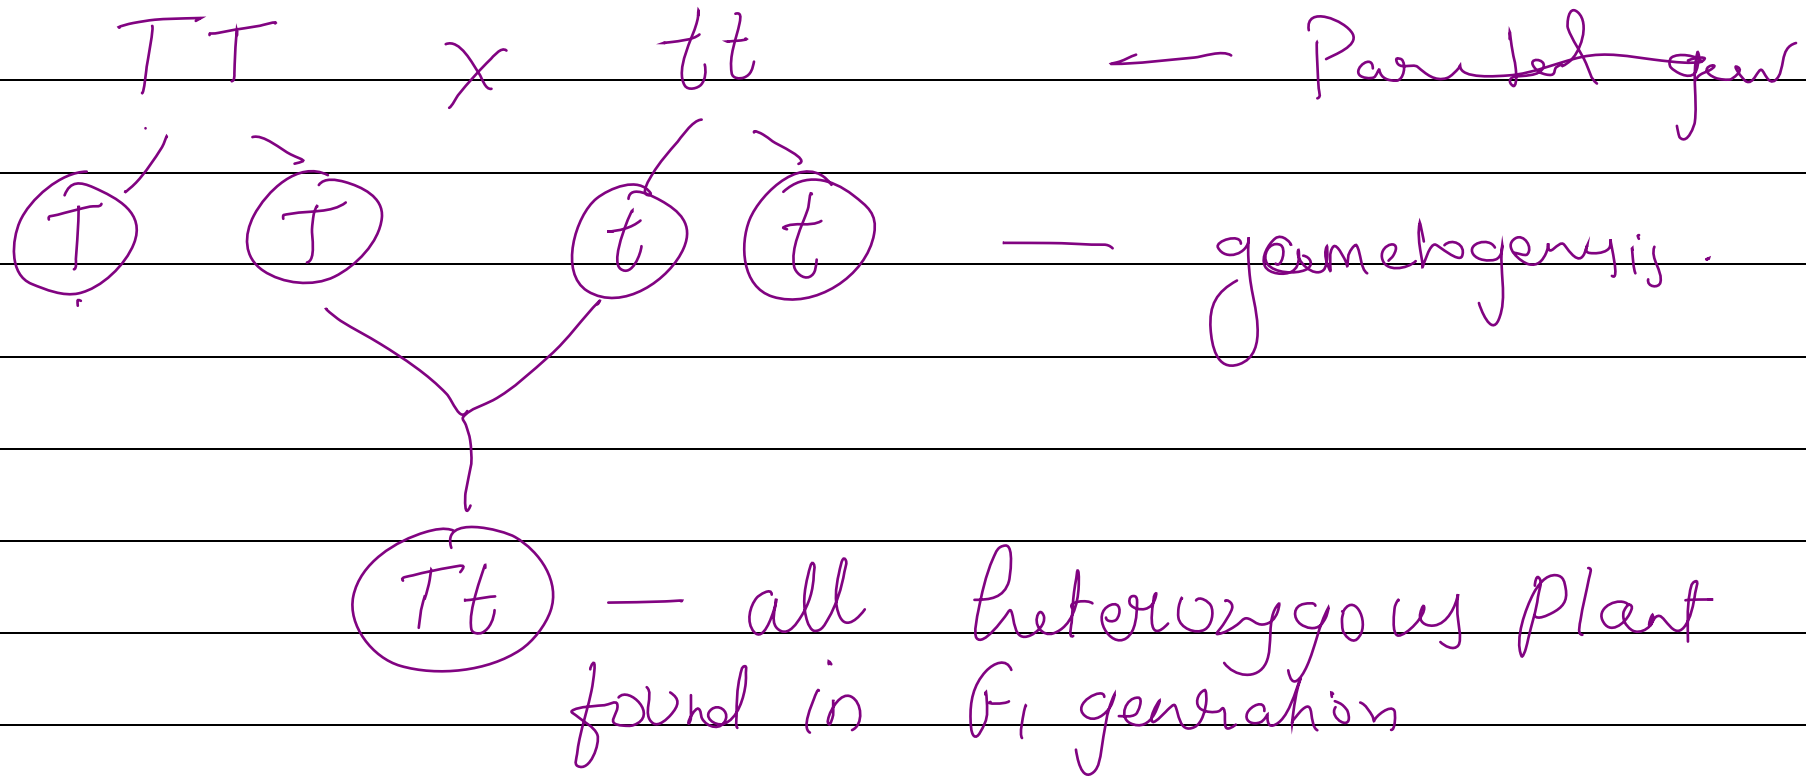 TT x tt — Parental gen
T T t t — gametogenysis.
Tt — all heterozygous Plant
found in F1 generation